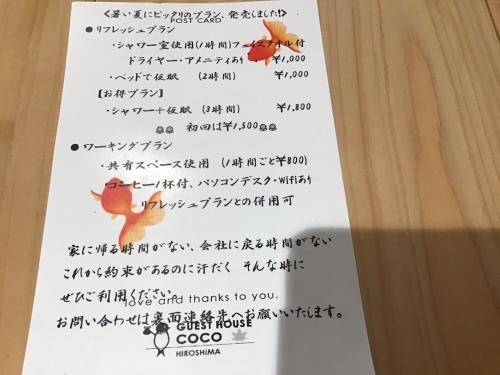 《暑い夏にピッタリのプラン発売しました!》
POST CARD
● リフレッシュプラン
・シャワー室使用(1時間)フェイスタオル付
ドライヤー・アメニティあり ¥1,000
・ベッドで仮眠 (2時間) ¥1,000
【お得プラン】
・シャワー+仮眠 (3時間) ¥1,800
初回は¥1,500
● ワーキングプラン
・共有スペース使用 (1時間ごと¥800)
・コーヒー1杯付、パソコンデスク・Wifiあり
リフレッシュプランとの併用可
家に帰る時間がない、会社に戻る時間がない
これから約束があるのに汗だく そんな時に
ぜひご利用ください
love and thanks to you.
お問い合わせは裏面連絡先へお願いいたします。
GUEST HOUSE
COCO
HIROSHIMA